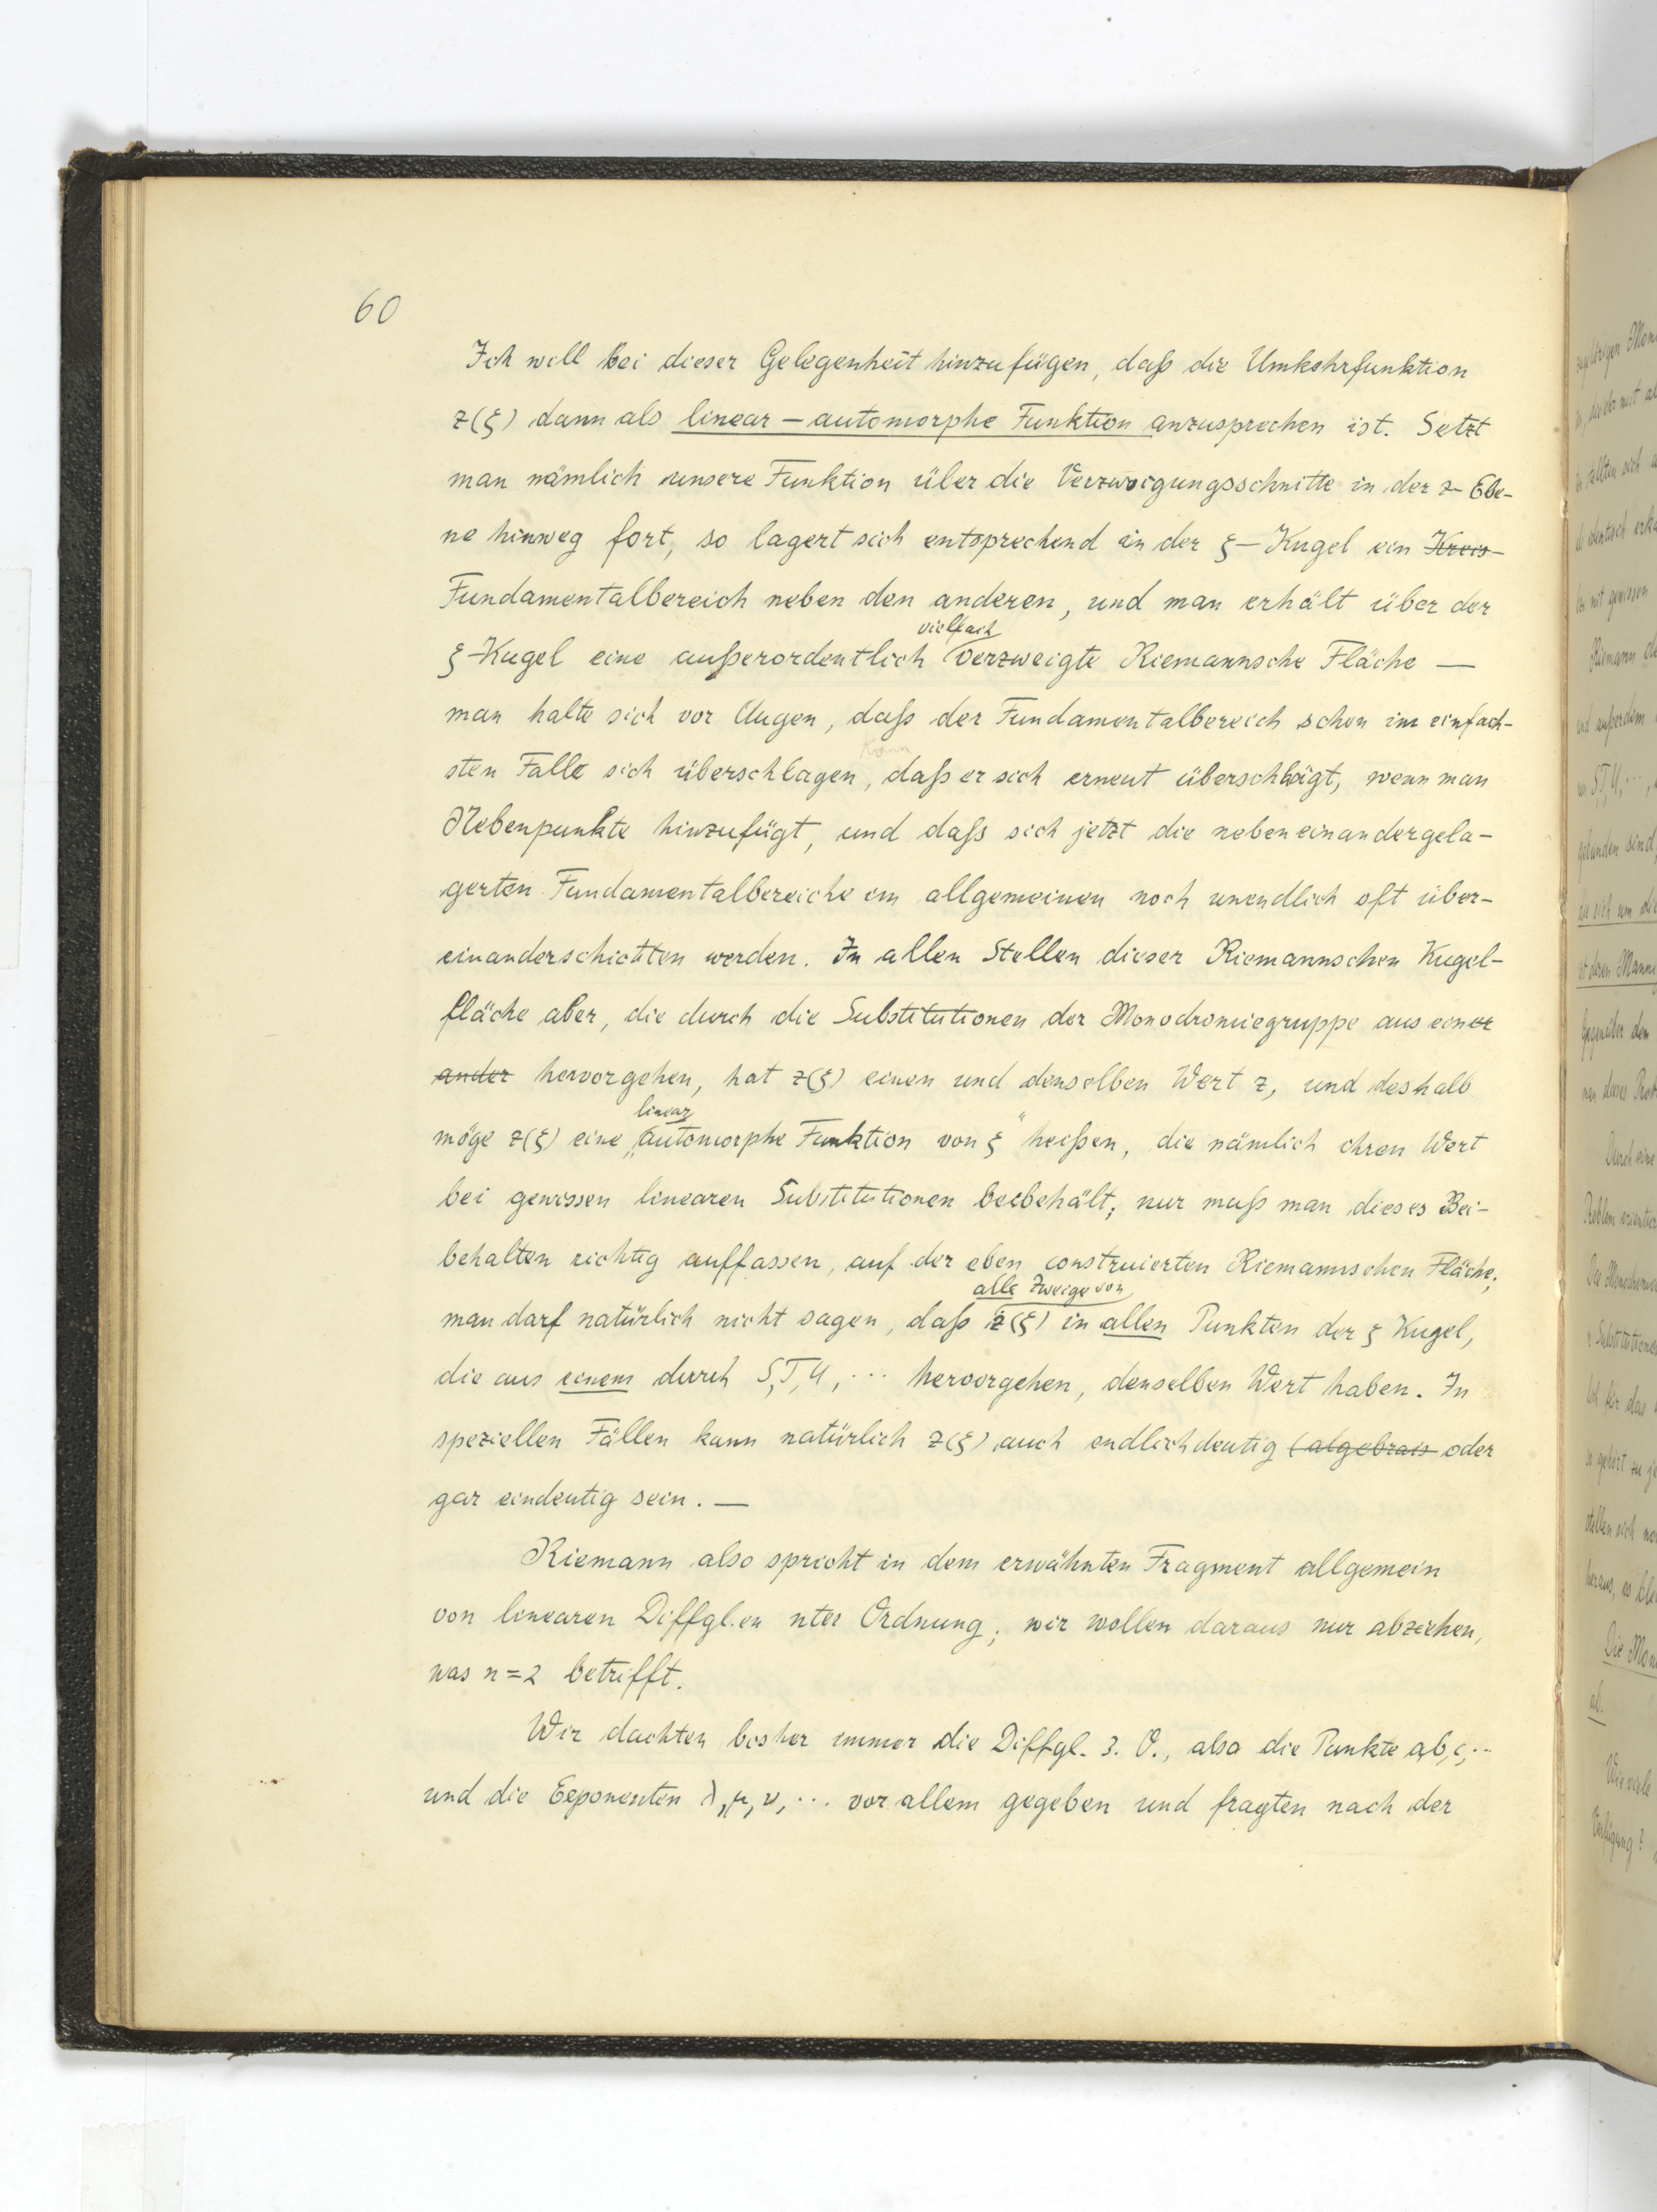 60
Ich will bei dieser Gelegenheit hinzufügen, daß die Umkehrfunktion
z(ξ) dann als linear – automorphe Funktion anzusprechen ist. Setzt
man nämlich unsere Funktion über die Verzweigungsschnitte in der z-Ebe-
ne hinweg fort, so lagert sich entsprechend in der ξ–Kugel ein Kreis
Fundamentalbereich neben den anderen, und man erhält über der
vielfach
ξ-Kugel eine außerordentlich verzweigte Riemannsche Fläche —
man halte sich vor Augen, daß der Fundamentalbereich schon im einfach-
kann
sten Falle sich überschlagen, daß er sich erneut überschlägt, wenn man
Nebenpunkte hinzufügt, und daß sich jetzt die nebeneinandergela-
gerten Fundamentalbereiche im allgemeinen noch unendlich oft über-
einanderschichten werden. In allen Stellen dieser Riemannschen Kugel-
fläche aber, die durch die Substitutionen der Monodromiegruppe aus einer
ander hervorgehen, hat z(ξ) einen und denselben Wert z, und deshalb
linear
möge z(ξ) eine „automorphe Funktion von ξ“ heißen, die nämlich ihren Wert
bei gewissen linearen Substitutionen beibehält; nur muß man dieses Bei-
behalten richtig auffassen, auf der eben construierten Riemannschen Fläche;
alle Zweige von
man darf natürlich nicht sagen, daß z(ξ) in allen Punkten der ξ Kugel,
die aus einem durch S, T, U, ... hervorgehen, denselben Wert haben. In
speziellen Fällen kann natürlich z(ξ) auch endlichdeutig (algebrais oder
gar eindeutig sein. —
Riemann also spricht in dem erwähnten Fragment allgemein
von linearen Diffgl.en nter Ordnung; wir wollen daraus nur abziehen,
was n=2 betrifft.
Wir dachten bisher immer die Diffgl. 3. O., also die Punkte a, b, c, ...
und die Exponenten λ, μ, ν, ... vor allem gegeben und fragten nach der